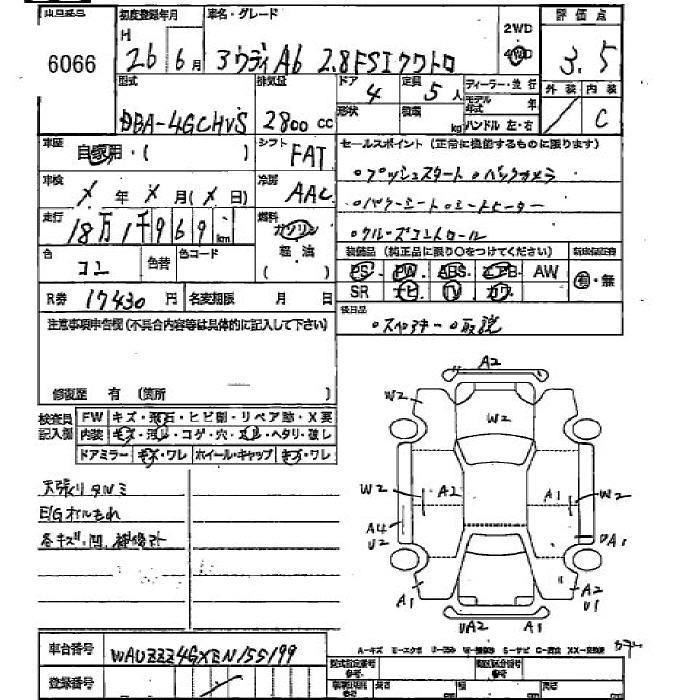 出品番号 初度登録年月 車名・グレード 2WD 評価点
6066 H 26年6月 アウディA6 2.8FSIクワトロ 4WD 3.5
型式 排気量 ドア 4 定員 5人 ディーラー・並行 外装 内装
DBA-4GCHVS 2800cc 形状 積載 kg モデル年式 年 ハンドル 左・右 / C
車歴 自家用・( ) シフト FAT セールスポイント (正常に機能するものに限ります)
車検 X年X月(X日) 冷房 AAC 。プッシュスタート 。バックカメラ
。パワーシート 。シートヒーター
走行 18万1千969km 燃料 ガソリン 軽油 ( ) 。クルーズコントロール
装備品 (純正品に限り○をつけてください)
色 コン 色替 色コード PS・PW・ABS・エアB・AW 有・無
R券 17430円 名変期限 月 日 SR ナビ TV カワ
注意事項申告欄(不具合内容等は具体的に記入して下さい) 後日品
。スペアキー 。取説
修復歴 有 (箇所 )
検査員記入欄 FW キズ・飛石・ヒビ割・リペア跡・X要
内装 キズ・汚れ・コゲ・穴・スレ・ヘタリ・破レ
ドアミラー キズ・ワレ ホイール・キャップ キズ・ワレ
天張りタルミ
E/Gオイルもれ
各キズ・凹、補修跡
A2
W2
W2
W2 A2 A1 W2
A4
U2
UA1
A1
A2
U1
UA2 A1
車台番号 WAUZZZ4GXEN155199
登録番号
A-キズ E-エクボ U-凹み W-補修跡 S-サビ C-腐食 XX-交換歴
型式指定番号 類別区分番号
長さ cm 幅 cm 高さ cm